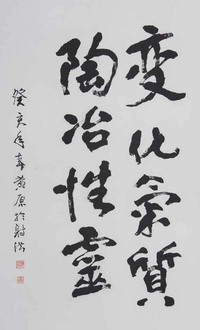 变化气质
陶冶性灵
癸亥年春黄原於